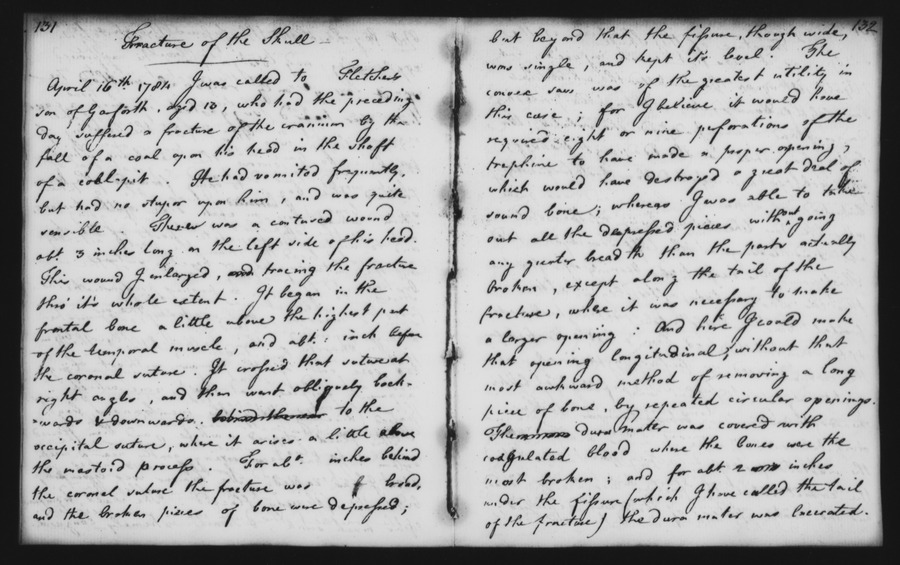 131
Fracture of the Skull
April 16th 1784 I was called to Fletcher's
son of Gaforth, aged 13, who had the preceding
day suffered a fracture of the cranium by the
fall of a coal upon his head in the shaft
of a coal-pit. He had vomited frequently,
but had no stupor upon him, and was quite
sensible. There was a contused wound
abt 3 inches long on the left side of his head.
This wound I enlarged, tracing the fracture
thro' it's whole extent. It began in the
frontal bone a little above the highest part
of the temporal muscle, and abt. inch before
the coronal suture. It crossed that suture at
right angles, and then went obliquely back-
wards & downwards to the
occipital suture, where it arises a little above
the mastoid process. For abt. inches behind
the coronal suture the fracture was broad,
and the broken pieces of bone were depressed;
132
but beyond that the fissure, though wide,
was single, and kept it's level. The
convex saw was of the greatest utility in
this case; for I believe it would have
required eight or nine perforations of the
trephine to have made a proper opening,
which would have destroyed a great deal of
sound bone; whereas I was able to take
out all the depressed pieces without going
any greater breadth than the parts actually
broken, except along the tail of the
fracture, where it was necessary to make
a larger opening: And here I could make
that opening longitudinal, without that
most awkward method of removing a long
piece of bone, by repeated circular openings.
The dura mater was covered with
coagulated blood where the bones were the
most broken; and for abt. 2 inches
under the fissure (which I have called the tail
of the fracture) the dura mater was lacerated.